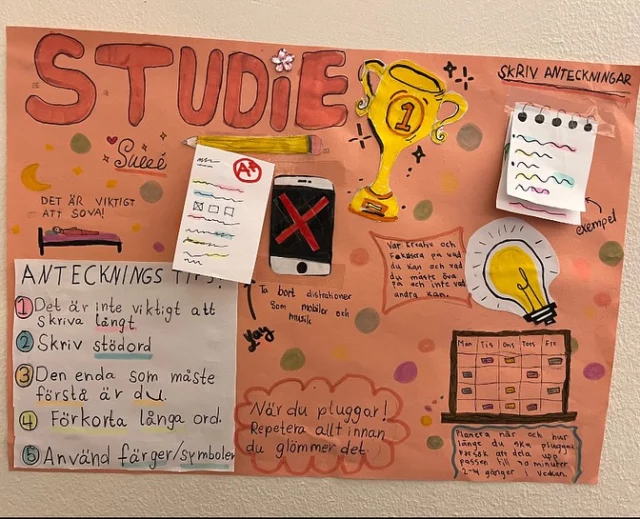 STUDIE
SKRIV ANTECKNINGAR
1
A+
exempel
DET ÄR VIKTIGT
ATT SOVA!
ANTECKNINGS TIPS!
1 Det är inte viktigt att
skriva långt.
2 Skriv stödord
3 Den enda som måste
förstå är du.
4 Förkorta långa ord.
5 Använd färger/symboler
Ta bort distrationer
som mobiler och
musik
Var kreativ och
fokusera på vad
du kan och vad
du måste öva
på och inte vad
andra kan.
Mån Tis Ons Tors Fre
När du pluggar!
Repetera allt innan
du glömmer det.
Planera när och hur
länge du ska plugga.
Försök att dela upp
passen till 20 minuter
2-4 gånger i veckan.